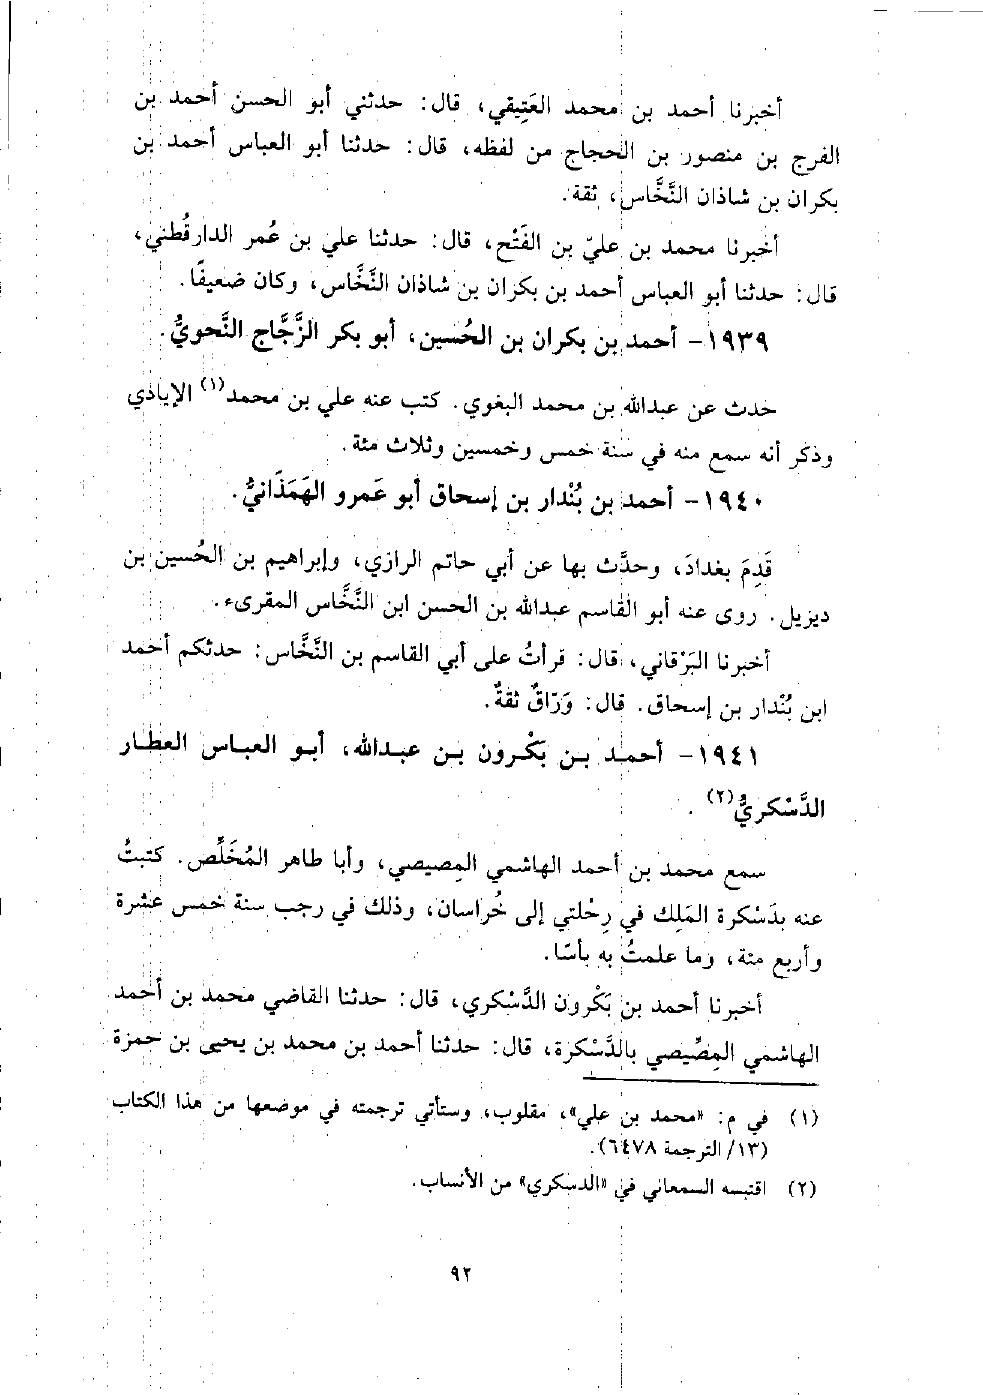 أخبرنا أحمد بن محمد العَتِيقي، قال: حدثني أبو الحسن أحمد بن
الفرج بن منصور بن الحجاج من لفظه، قال: حدثنا أبو العباس أحمد بن
بكران بن شاذان النَّخَّاس، ثقة.
أخبرنا محمد بن عليّ بن الفَتْح، قال: حدثنا علي بن عُمر الدارقُطني،
قال: حدثنا أبو العباس أحمد بن بكران بن شاذان النَّخَّاس، وكان ضعيفًا.
١٩٣٩- أحمد بن بكران بن الحُسين، أبو بكر الزَّجَّاج النَّحويُّ.
حدث عن عبدالله بن محمد البغوي. كتب عنه علي بن محمد(١) الإياذي
وذكر أنه سمع منه في سنة خمس وخمسين وثلاث مئة.
١٩٤٠- أحمد بن بُنْدار بن إسحاق أبو عَمرو الهَمَذَانيُّ.
قَدِمَ بغدادَ، وحدَّث بها عن أبي حاتم الرازي، وإبراهيم بن الحُسين بن
ديزيل. روى عنه أبو القاسم عبدالله بن الحسن ابن النَّخَّاس المقرىء.
أخبرنا البَرْقاني، قال: قرأتُ على أبي القاسم بن النَّخَّاس: حدثكم أحمد
ابن بُنْدار بن إسحاق. قال: وَرّاقٌ ثقةٌ.
١٩٤١- أحمد بن بَكْرون بن عبدالله، أبو العباس العطار
الدَّسْكريُّ(٢).
سمع محمد بن أحمد الهاشمي المِصيصي، وأبا طاهر المُخَلِّص. كتبتُ
عنه بدَسْكرة المَلِك في رِحْلتي إلى خُراسان، وذلك في رجب سنة خمس عشرة
وأربع مئة، وما علمتُ به بأسًا.
أخبرنا أحمد بن بَكْرون الدَّسْكري، قال: حدثنا القاضي محمد بن أحمد
الهاشمي المِصِّيصي بالدَّسْكرة، قال: حدثنا أحمد بن محمد بن يحيى بن حمزة
(١) في م: «محمد بن علي»، مقلوب، وستأتي ترجمته في موضعها من هذا الكتاب
(١٣/ الترجمة ٦٤٧٨).
(٢) اقتبسه السمعاني في «الدسكري» من الأنساب.
٩٢